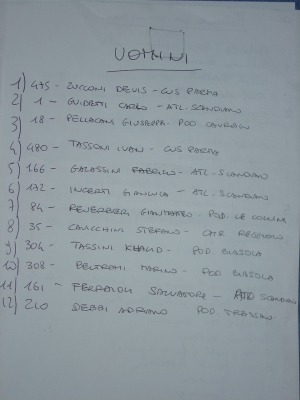 UOMINI
1) 475 - ZUCCONI DEVIS - CUS PARMA
2) 1 - GUIDETTI CARLO - ATL. SCANDIANO
3) 18 - PELLACANI GIUSEPPE - POD.
4) 480 - TASSONI IVAN - CUS PARMA
5) 166 - GALASSINI FABRIZIO - ATL. SCANDIANO
6) 172 - INCERTI GIANLUCA - ATL. SCANDIANO
7) 84 - REVERBERI - POD. LE COLLINE
8) 35 - CAVICCHINI STEFANO - REGGIO
9) 304 - TASSINI KHALID - POD BIASOLA
10) 308 - BELTRAMI MARINO - POD BIASOLA
11) 161 - FERRAIOLI SALVATORE - SCANDIANO
12) 210 DEBBI ADRIANO POD. TRESSANO